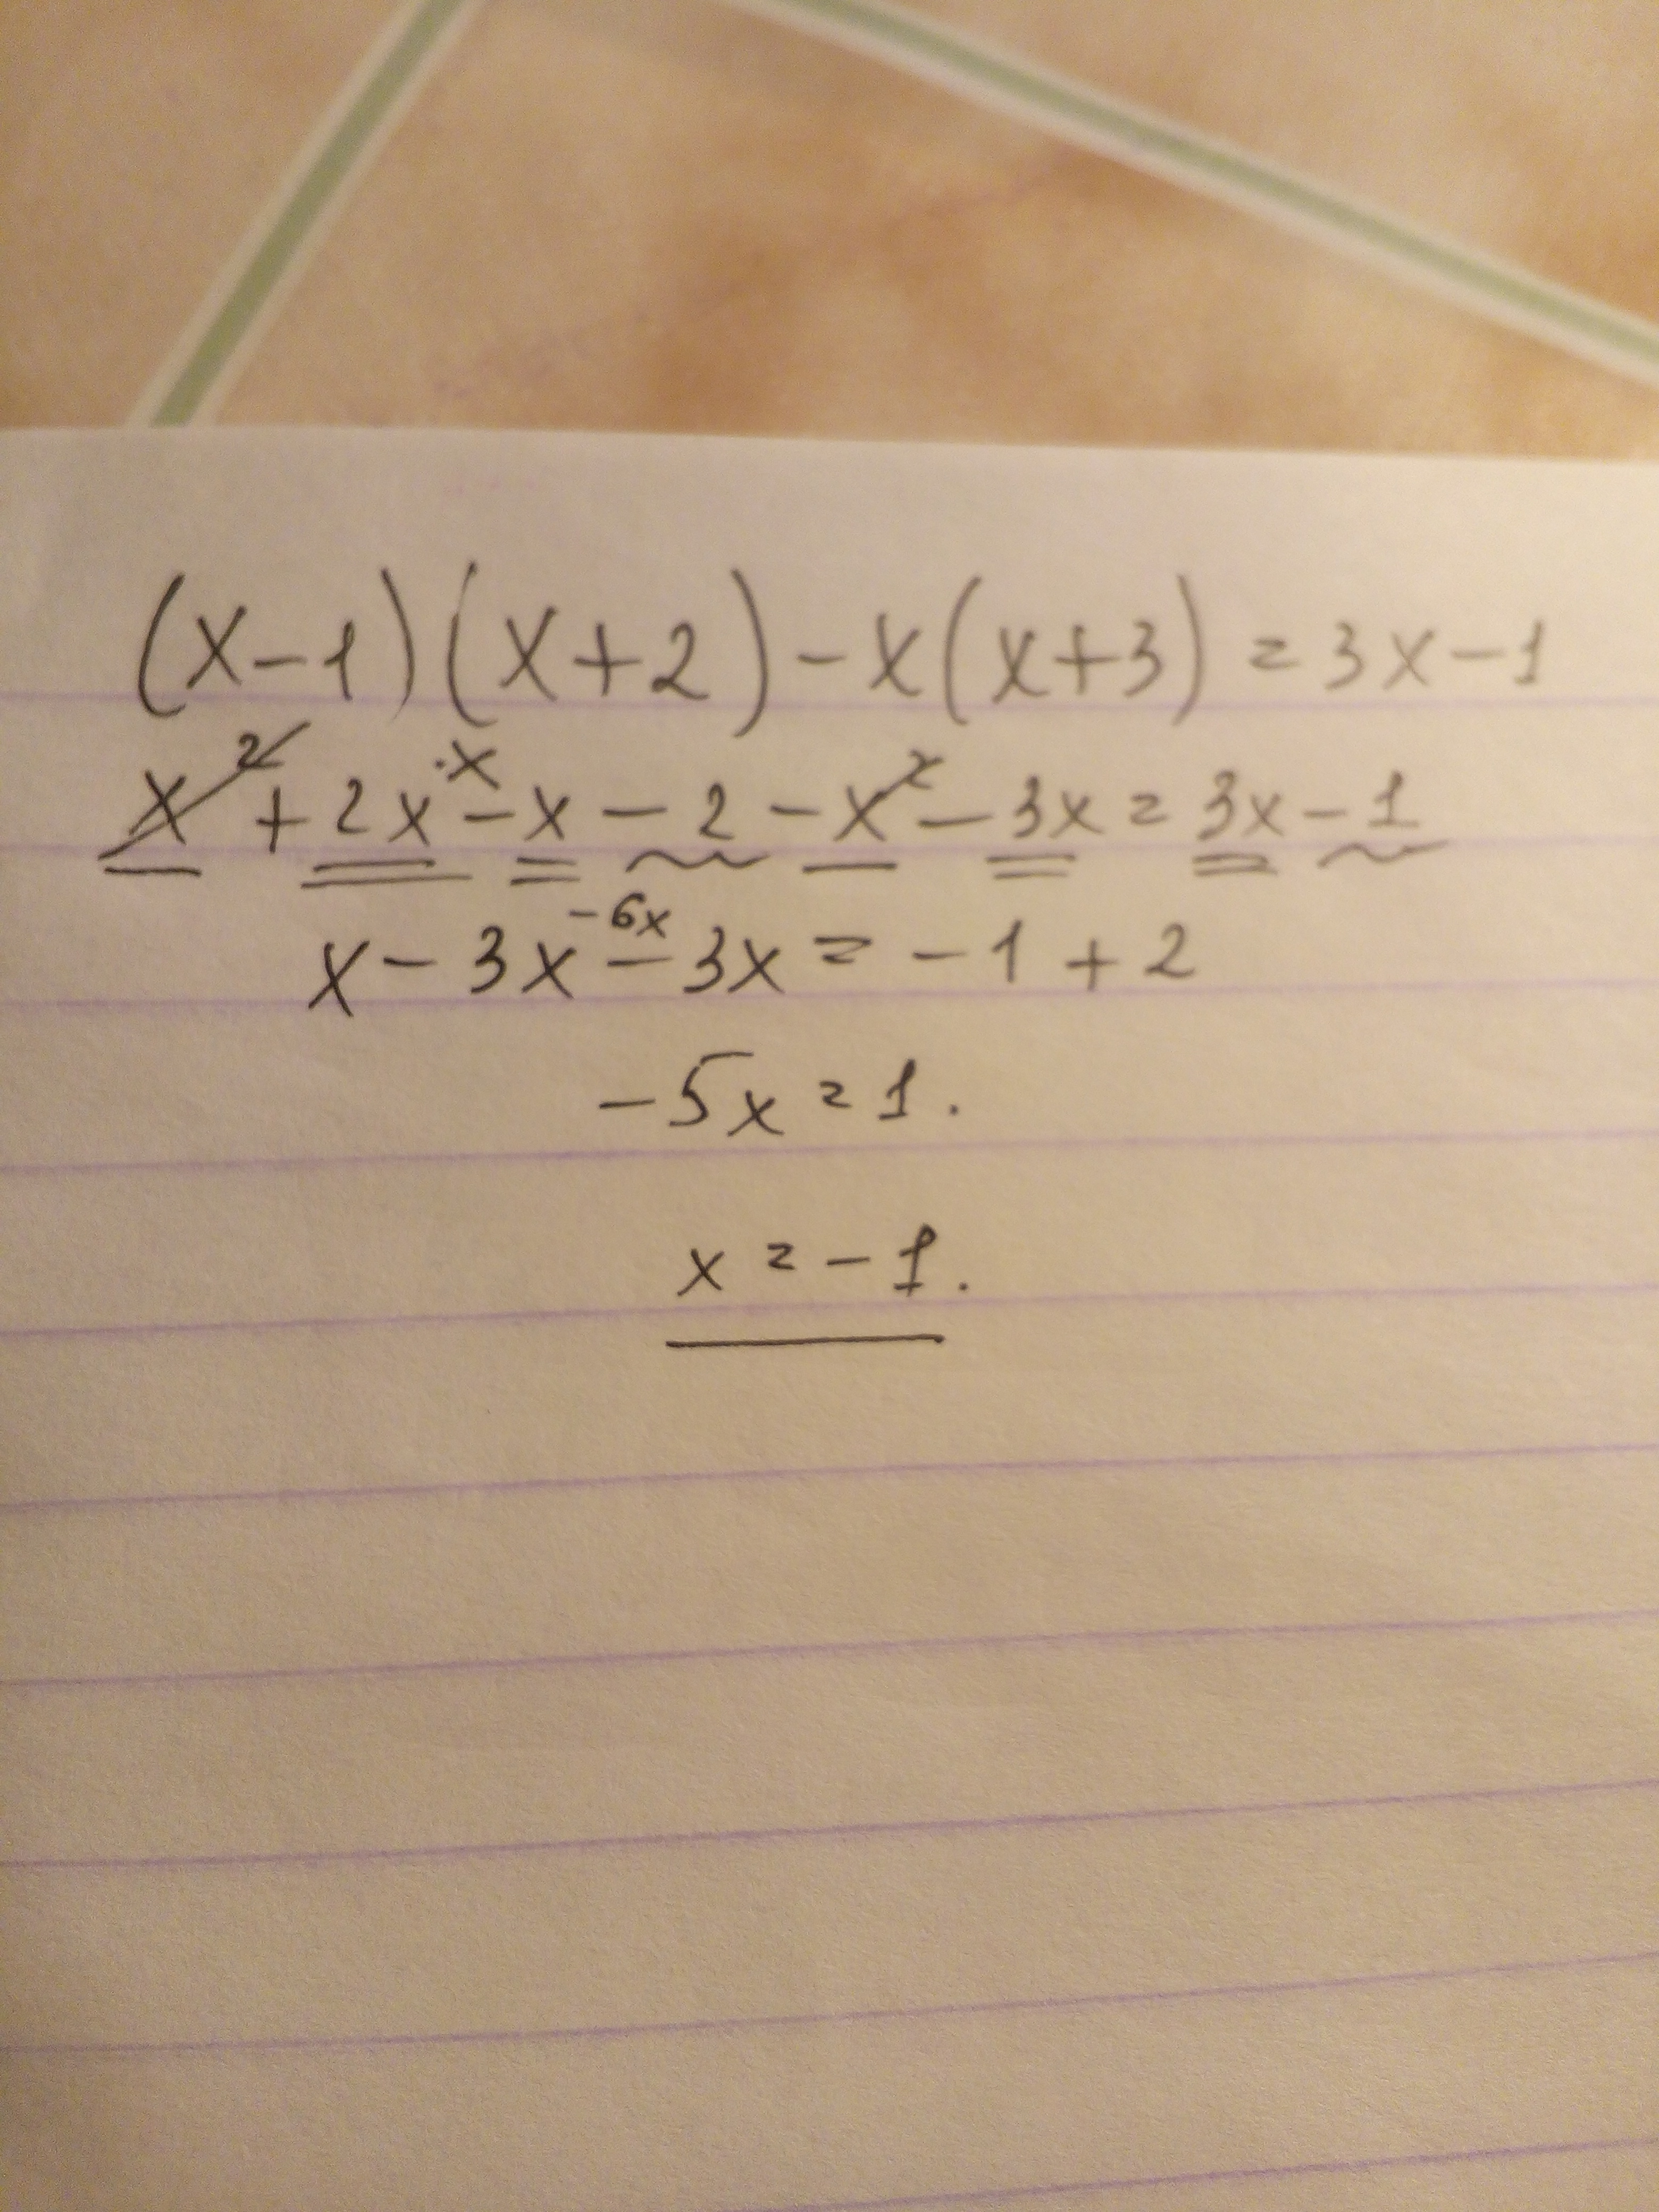 (x-1)(x+2)-x(x+3)=3x-1
x²+2x-x-2-x²-3x=3x-1
·x
-6x
x-3x-3x=-1+2
-5x=1.
x=-1.